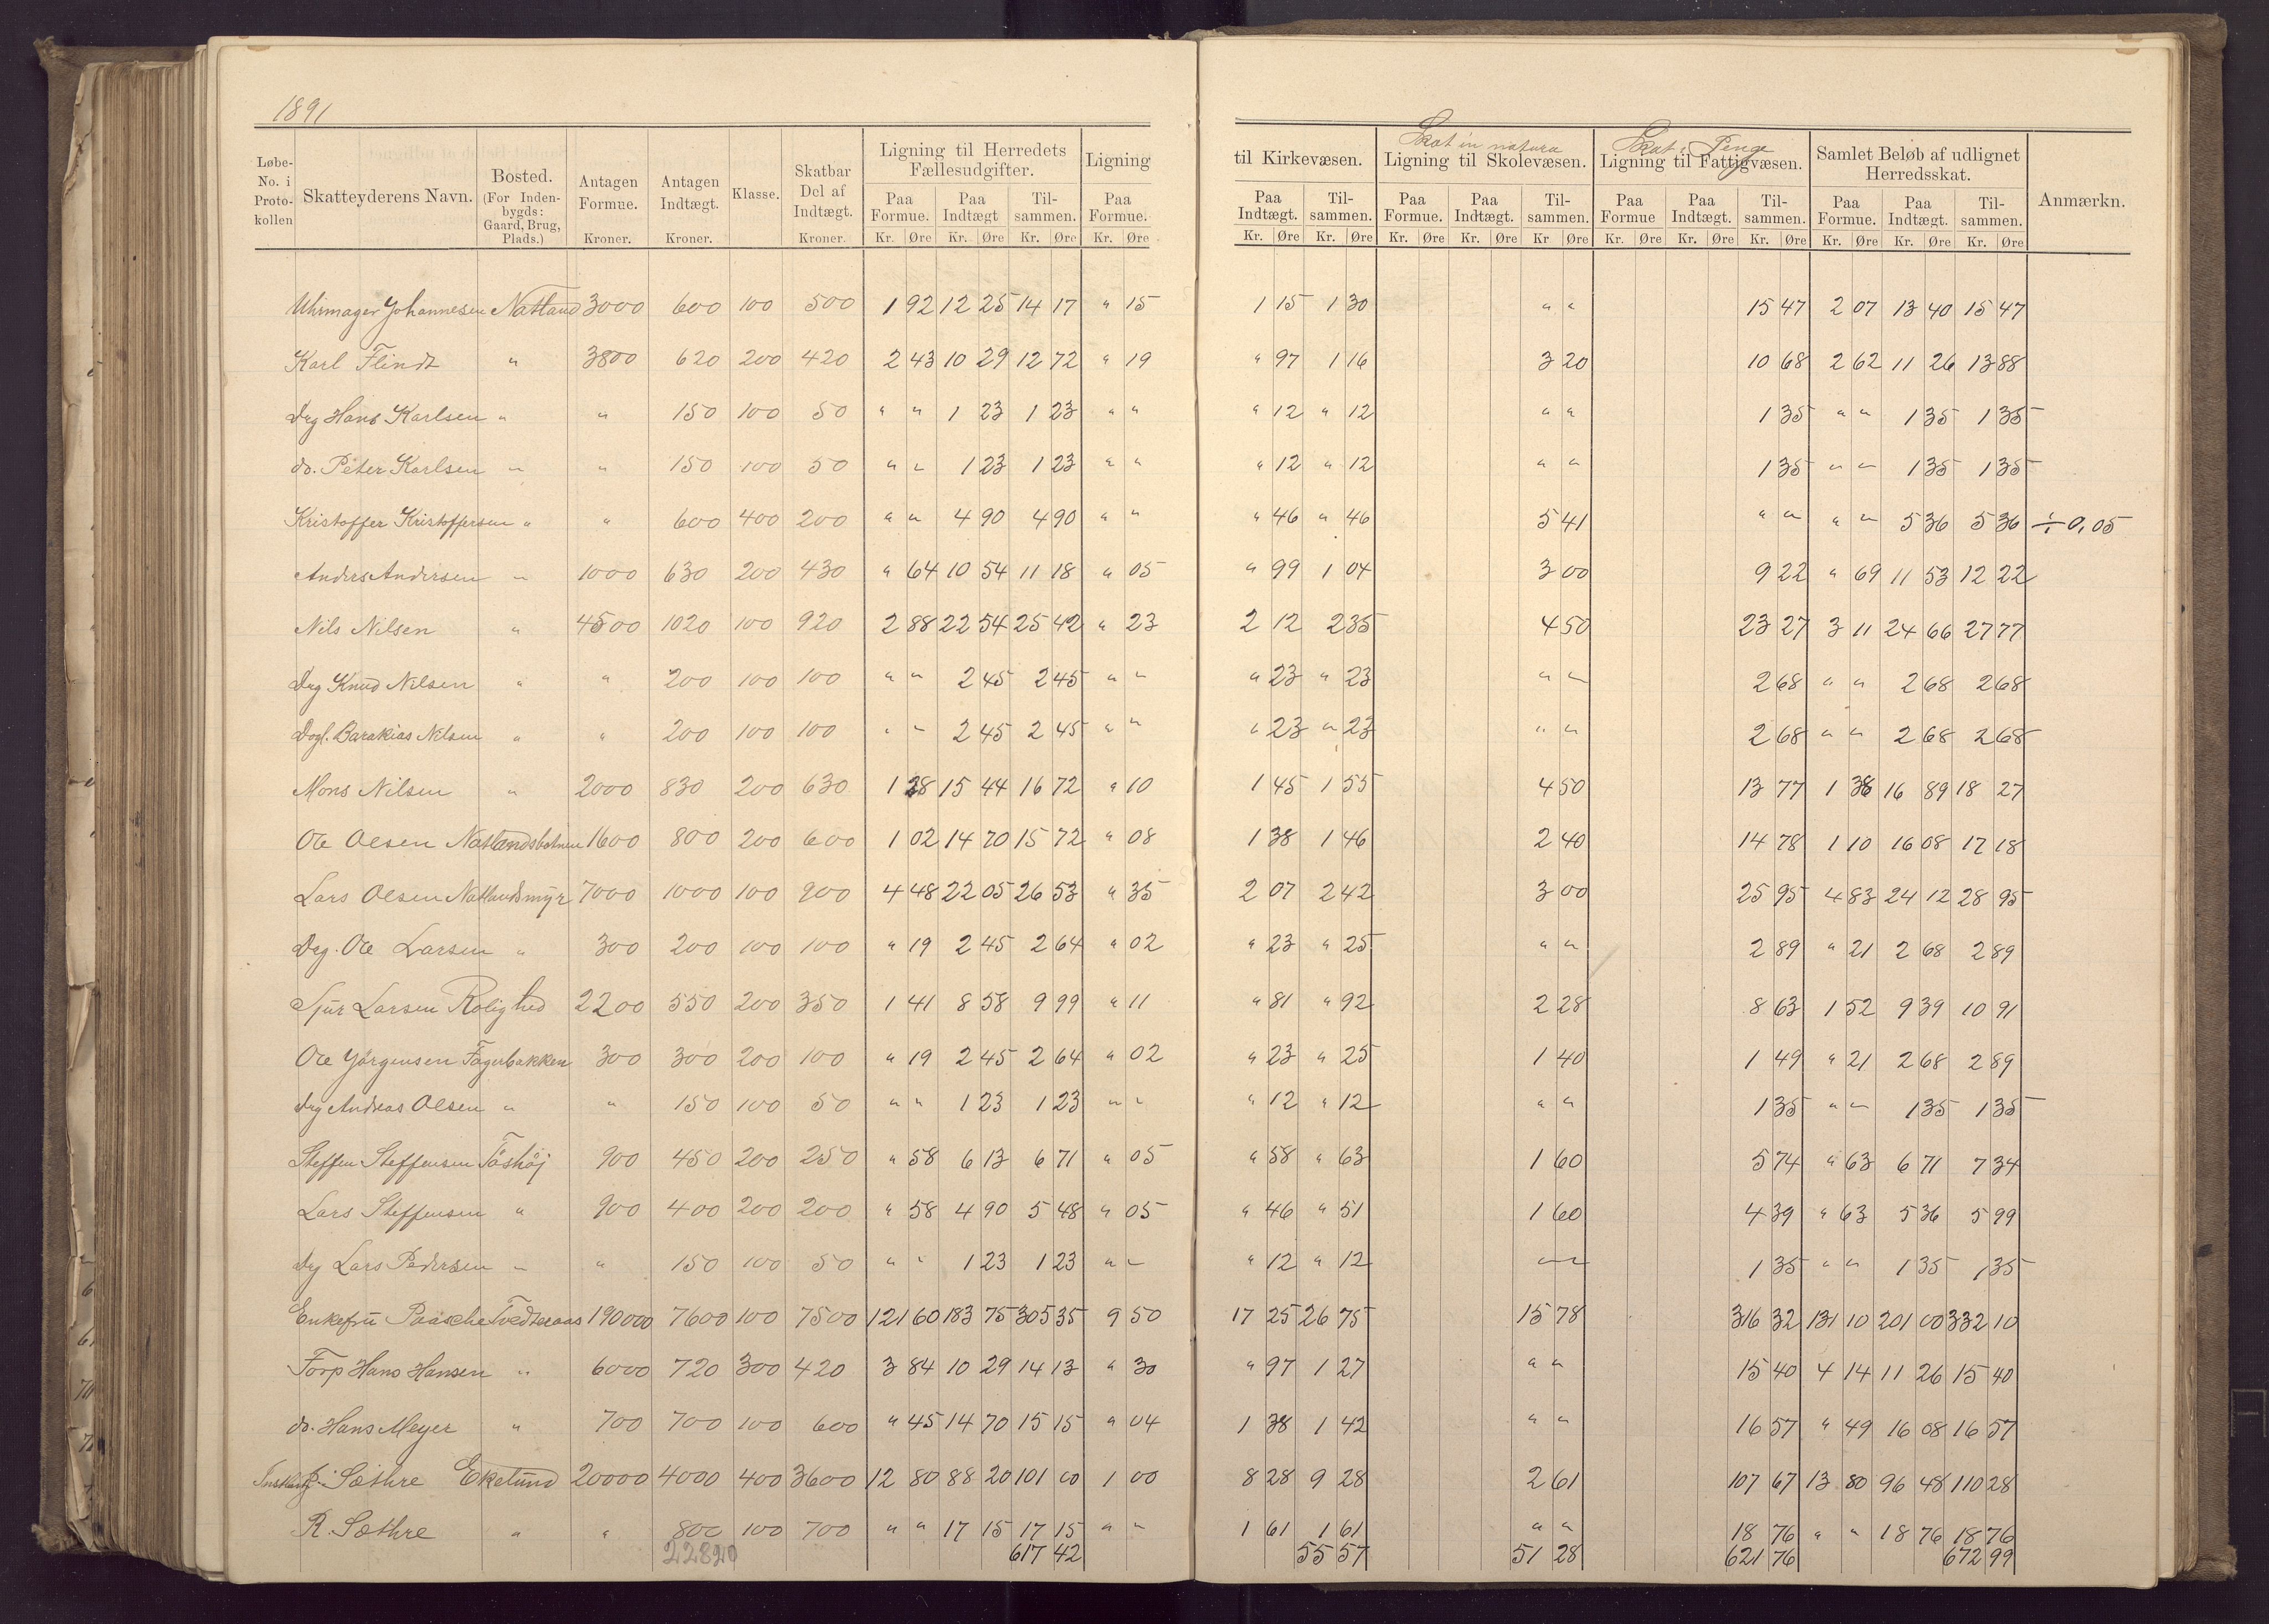 1891
Løbe- No. i Proto- kollen Skatteyderens Navn. Bosted. (For Inden- bygds: Gaard, Brug, Plads.) Antagen Formue. Kroner. Antagen Indtægt. Kroner. Klasse. Skatbar Del af Indtægt. Kroner. Ligning til Herredets Fællesudgifter. Paa Formue. Kr. Øre Paa Indtægt Kr. Øre Til- sammen. Kr. Øre Ligning Paa Formue. Kr. Øre
til Kirkevæsen. Paa Indtægt. Kr. Øre Til- sammen. Kr. Øre Skat in natura Ligning til Skolevæsen. Paa Formue. Kr. Øre Paa Indtægt. Kr. Øre Til- sammen. Kr Øre Skat i Penge Ligning til Fattigvæsen. Paa Formue Kr. Øre Paa Indtægt. Kr. Øre Til- sammen. Kr. Øre Samlet Beløb af udlignet Herredsskat. Paa Formue. Kr. Øre Paa Indtægt. Kr. Øre Til- sammen. Kr. Øre Anmærkn.
Uhrmager Johannesen Natland 3000 600 100 500 1 92 12 25 14 17 " 15 1 15 1 30 " " 15 47 2 07 13 40 15 47
Karl Flindt " 3800 620 200 420 2 43 10 29 12 72 " 19 " 97 1 16 3 20 10 68 2 62 11 26 13 88
Drg Hans Karlsen " " 150 100 50 " " 1 23 1 23 " " " 12 " 12 " " 1 35 " " 1 35 1 35
do. Peter Karlsen " " 150 100 50 " " 1 23 1 23 " " " 12 " 12 " " 1 35 " " 1 35 1 35
Kristoffer Kristoffersen " " 600 400 200 " " 4 90 4 90 " " " 46 " 46 5 41 " " " " 5 36 5 36 ÷ 0,05
Anders Andersen " 1000 630 200 430 " 64 10 54 11 18 " 05 " 99 1 04 3 00 9 22 " 69 11 53 12 22
Nils Nilsen " 4500 1020 100 920 2 88 22 54 25 42 " 23 2 12 2 35 4 50 23 27 3 11 24 66 27 77
Drg Knud Nilsen " " 200 100 100 " " 2 45 2 45 " " " 23 " 23 " " 2 68 " " 2 68 2 68
Dogl. Barakias Nilsen " " 200 100 100 " " 2 45 2 45 " " " 23 " 23 " " 2 68 " " 2 68 2 68
Mons Nilsen " 2000 830 200 630 1 28 15 44 16 72 " 10 1 45 1 55 4 50 13 77 1 38 16 89 18 27
Ole Olsen Natlandsbotnen 1600 800 200 600 1 02 14 70 15 72 " 08 1 38 1 46 2 40 14 78 1 10 16 08 17 18
Lars Olsen Natlandsmyr 7000 1000 100 900 4 48 22 05 26 53 " 35 2 07 2 42 3 00 25 95 4 83 24 12 28 95
Drg. Ole Larsen " 300 200 100 100 " 19 2 45 2 64 " 02 " 23 " 25 " " 2 89 " 21 2 68 2 89
Sjur Larsen Rolighed 2200 550 200 350 1 41 8 58 9 99 " 11 " 81 " 92 2 28 8 63 1 52 9 39 10 91
Ole Jörgensen Fagerbakken 300 300 200 100 " 19 2 45 2 64 " 02 " 23 " 25 1 40 1 49 " 21 2 68 2 89
Drg Andreas Olsen " " 150 100 50 " " 1 23 1 23 " " " 12 " 12 " " 1 35 " " 1 35 1 35
Steffen Steffensen 900 450 200 250 " 58 6 13 6 71 " 05 " 58 " 63 1 60 5 74 " 63 6 71 7 34
Lars Steffensen " 900 400 200 200 " 58 4 90 5 48 " 05 " 46 " 51 1 60 4 39 " 63 5 36 5 99
Drg Lars Pedersen " " 150 100 50 " " 1 23 1 23 " " " 12 " 12 " " 1 35 " " 1 35 1 35
Enkefru Paasche Tvedteraas 190000 7600 100 7500 121 60 183 75 305 35 9 50 17 25 26 75 15 78 316 32 131 10 201 00 332 10
Forp Hans Hansen " 6000 720 300 420 3 84 10 29 14 13 " 30 " 97 1 27 " " 15 40 4 14 11 26 15 40
do. Hans Meyer " 700 700 100 600 " 45 14 70 15 15 " 04 1 38 1 42 " " 16 57 " 49 16 08 16 57
Sæthre Ekelund 20000 4000 400 3600 12 80 88 20 101 00 1 00 8 28 9 28 2 61 107 67 13 80 96 48 110 28
R. Sæthre " " 800 100 700 " " 17 15 17 15 " " 1 61 1 61 " " 18 76 " " 18 76 18 76
22820 617 42 55 57 51 28 621 76 672 99